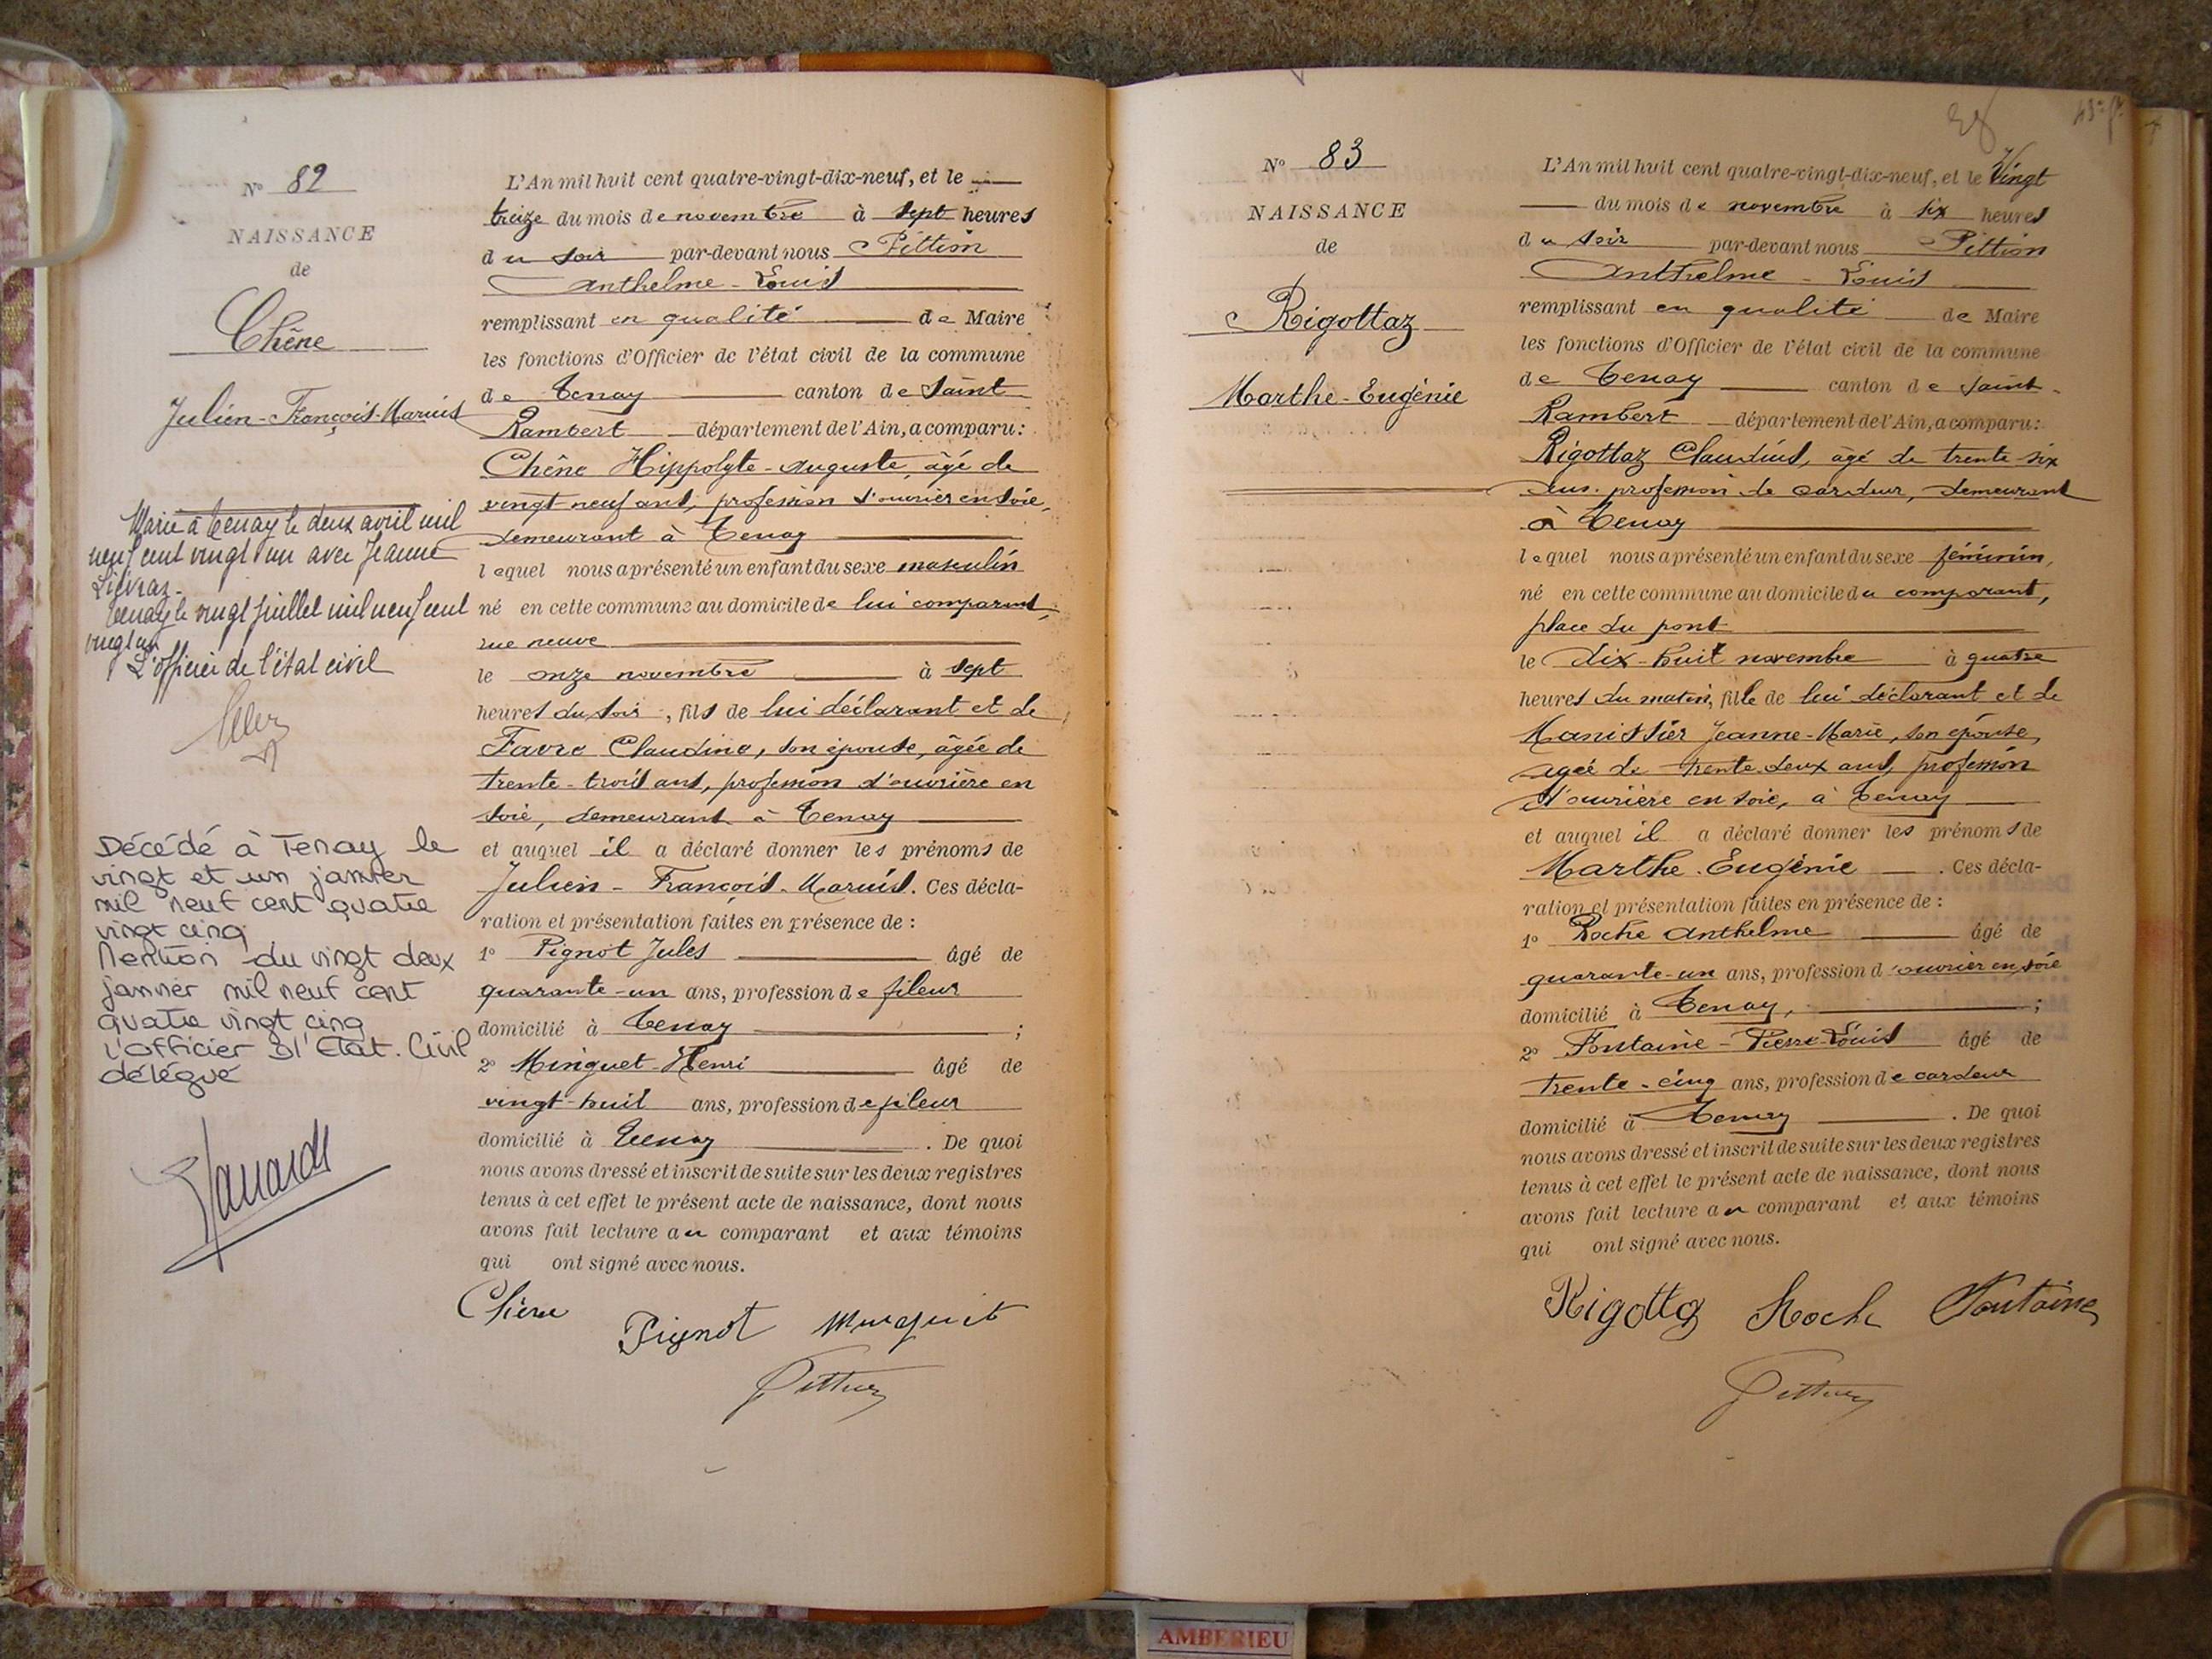 N° 82
NAISSANCE
de
Chêne
Julien-François-Marius
Marié à Tenay le deux avril mil
neuf cent vingt un avec Jeanne
Lievraz.
Tenay le vingt juillet mil neuf cent
vingt un
L'officier de l'état civil
Décédé à Tenay le
vingt et un janvier
mil neuf cent quatre
vingt cinq
Mention du vingt deux
janvier mil neuf cent
quatre vingt cinq
L'officier d l'Etat. Civil
délégué
L'An mil huit cent quatre-vingt-dix-neuf, et le
treize du mois de novembre à sept heures
du soir par-devant nous Pittion
Anthelme-Louis
remplissant en qualité de Maire
les fonctions d'Officier de l'état civil de la commune
de Tenay canton de Saint
Rambert département de l'Ain, a comparu:
Chêne Hippolyte-Auguste, âgé de
vingt neuf ans, profession d'ouvrier en soie,
demeurant à Tenay
lequel nous a présenté un enfant du sexe masculin
né en cette commune au domicile de lui comparant,
rue neuve
le onze novembre à sept
heures du soir, fils de lui déclarant et de
Favre Claudine, son épouse, âgée de
trente-trois ans, profession d'ouvrière en
soie, demeurant à Tenay
et auquel il a déclaré donner les prénoms de
Julien-François-Marius. Ces décla-
ration et présentation faites en présence de :
1° Pignot Jules âgé de
quarante-un ans, profession de fileur
domicilié à Tenay ;
2° Minguet-Henri âgé de
vingt-huit ans, profession de fileur
domicilié à Tenay . De quoi
nous avons dressé et inscrit de suite sur les deux registres
tenus à cet effet le présent acte de naissance, dont nous
avons fait lecture au comparant et aux témoins
qui ont signé avec nous.
Chêne Pignot Minguet
Pittion
N° 83
NAISSANCE
de
Rigottaz
Marthe-Eugénie
L'An mil huit cent quatre-vingt-dix-neuf, et le Vingt
du mois de novembre à six heures
du soir par-devant nous Pittion
Anthelme-Louis
remplissant en qualité de Maire
les fonctions d'Officier de l'état civil de la commune
de Tenay canton de Saint-
Rambert département de l'Ain, a comparu:
Rigottaz Claudius, âgé de trente six
ans. profession de cardeur, demeurant
à Tenay
lequel nous a présenté un enfant du sexe féminin,
né en cette commune au domicile du comparant,
place du pont
le dix-huit novembre à quatre
heures du matin, fille de lui déclarant et de
Manissier Jeanne-Marie, son épouse,
agée de trente-deux ans, profession
d'ouvrière en soie, à Tenay
et auquel il a déclaré donner les prénoms de
Marthe-Eugénie . Ces décla-
ration et présentation faites en présence de :
1° Roche Anthelme âgé de
quarante-un ans, profession d'ouvrier en soie
domicilié à Tenay, ;
2° Fontaine-Pierre-Louis âgé de
trente-cinq ans, profession de cardeur
domicilié à Tenay . De quoi
nous avons dressé et inscrit de suite sur les deux registres
tenus à cet effet le présent acte de naissance, dont nous
avons fait lecture au comparant et aux témoins
qui ont signé avec nous.
Rigottaz Roche Fontaine
Pittion
AMBERIEU